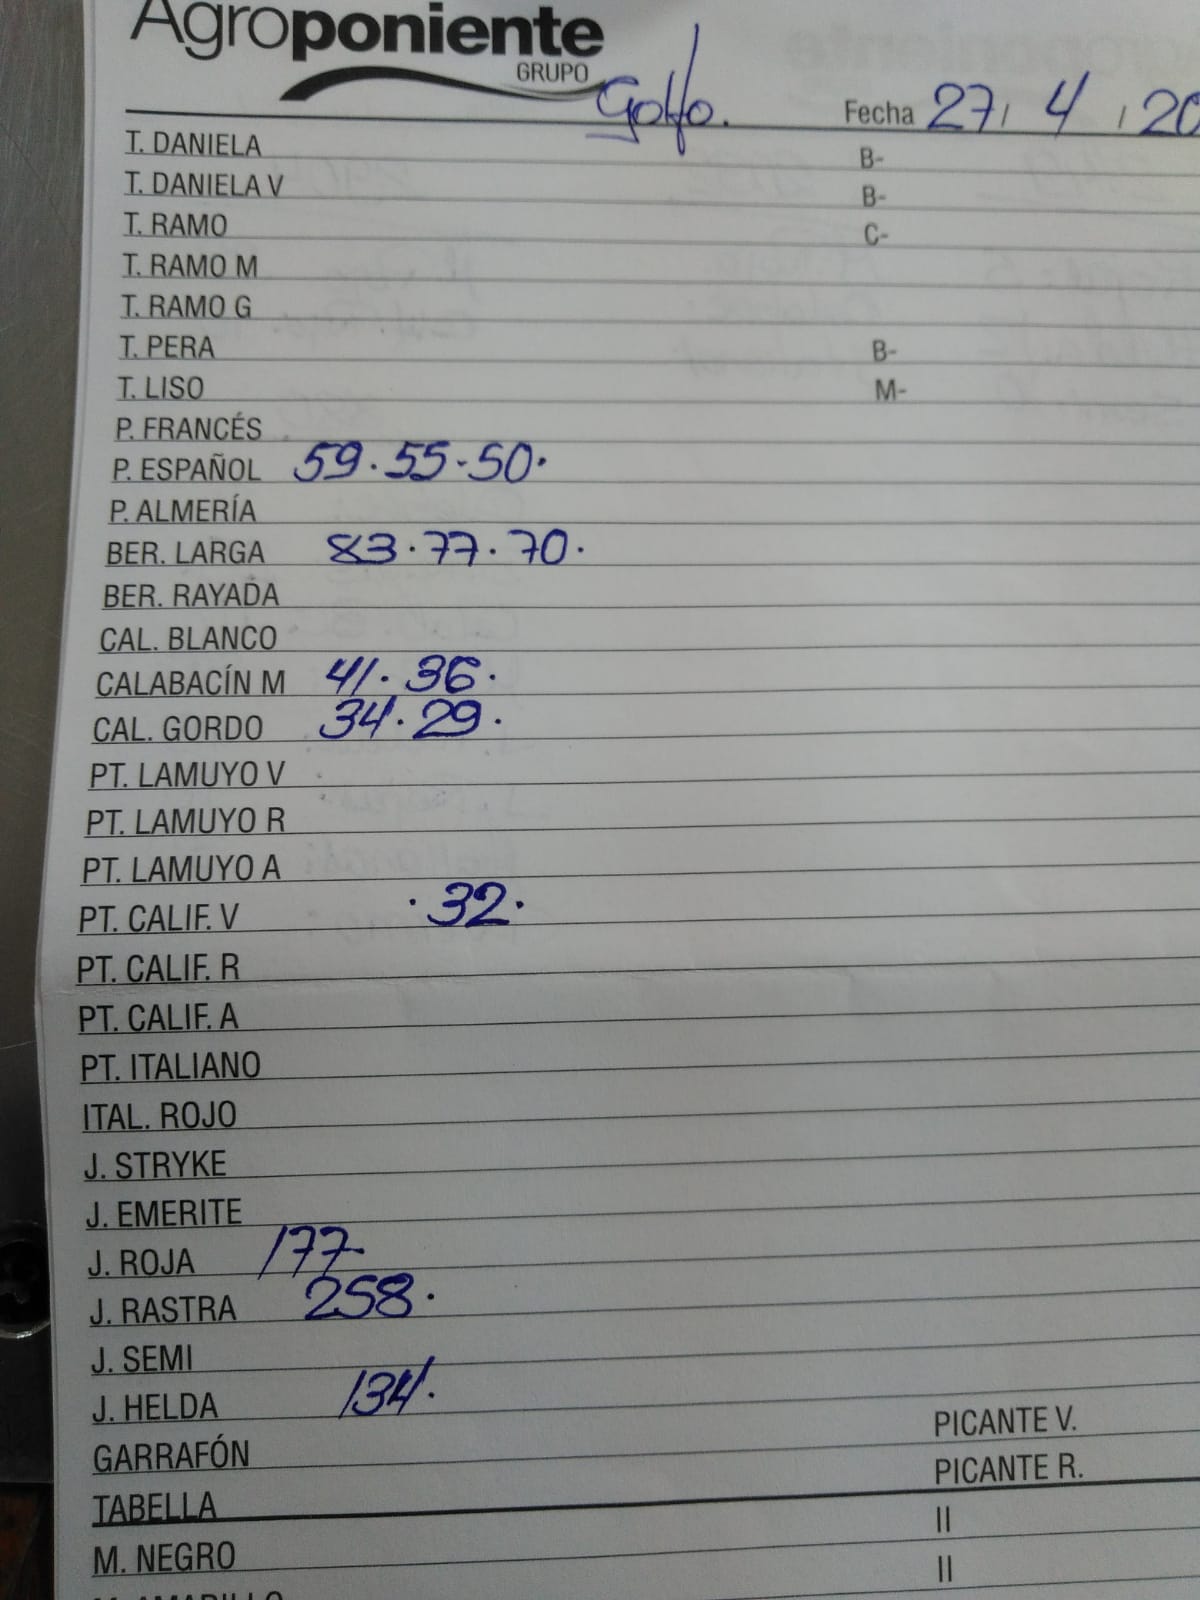 Agroponiente
GRUPO
Golfo. Fecha 27/ 4 / 20
T. DANIELA B-
T. DANIELA V B-
T. RAMO C-
T. RAMO M
T. RAMO G
T. PERA B-
T. LISO M-
P. FRANCÉS
P. ESPAÑOL 59.55-50.
P. ALMERÍA
BER. LARGA 83.77.70.
BER. RAYADA
CAL. BLANCO
CALABACÍN M 41. 36.
CAL. GORDO 34.29.
PT. LAMUYO V
PT. LAMUYO R
PT. LAMUYO A
PT. CALIF. V .32.
PT. CALIF. R
PT. CALIF. A
PT. ITALIANO
ITAL. ROJO
J. STRYKE
J. EMERITE
J. ROJA 177
J. RASTRA 258.
J. SEMI
J. HELDA 134.
GARRAFÓN PICANTE V.
TABELLA PICANTE R.
M. NEGRO II
II